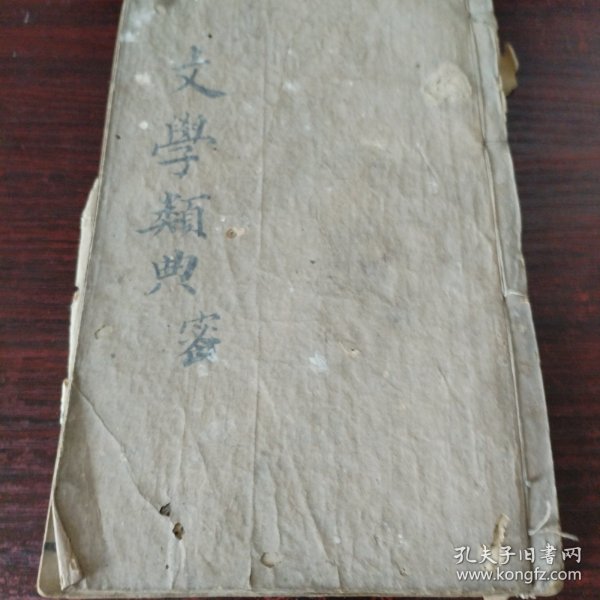 文學類典
密
孔夫子旧書网
www.kongfz.com